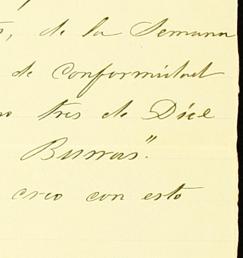 de la Semana
de conformidad
tres de Dice
Burras".
creo con esto